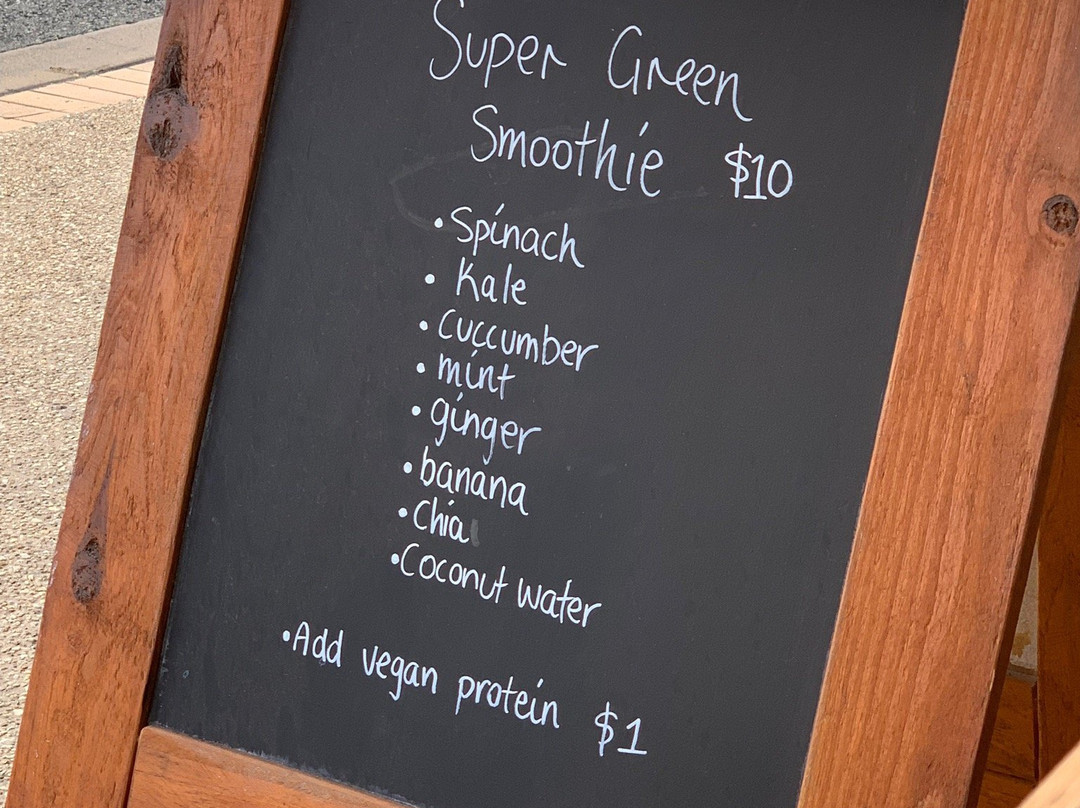 Super Green
Smoothie $10
• Spinach
• Kale
• Cuccumber
• mint
• ginger
• banana
• Chia
• Coconut water
• Add vegan protein $1